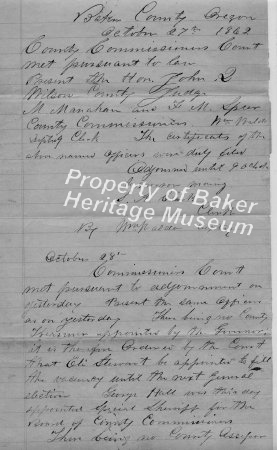 Baker County, Oregon
October 27th 1862
County Commissioners Court
met pursuant to law
Present the Hon John Q
Wilson County Judge
M. Manahan and F. M. Spicer
County Commissioners. Wm
Deputy Clerk The certificates of the
above named officers were duly filed
Adjourned until
Clerk
By
Property of Baker
Heritage Museum
October 28th
Commissioners Court
met pursuant to adjournment on
yesterday Present the same officers
as on yesterday There being no County
Treasurer appointed by the Governor
it is therefore Ordered by the Court
that Eli Stewart be appointed to fill
the vacancy until the next general
election George Hall was this day
appointed special Sheriff for the
Board of County Commissioners
There being no County Assessor